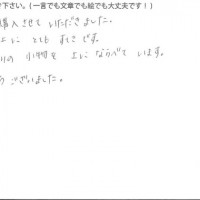 下さい。(一言でも文章でも絵でも大丈夫です！)
購入させて いただきました。
とても すてきです。
りの 小物を 上に ならべて います。
うございました。